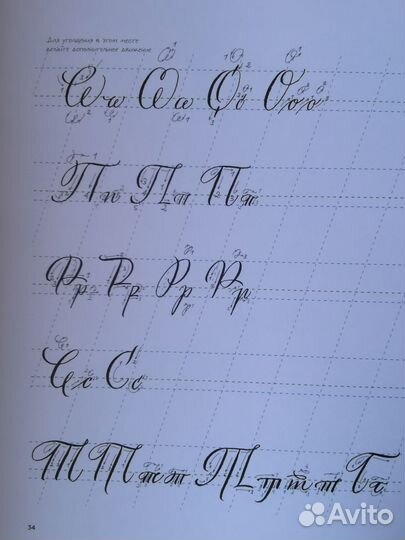 Для утолщения в этом месте
делайте дополнительное движение
Оо Оо Оо Оо
Пп Пп Пп
Рр Рр Рр Рр
Сс Сс
Т Т т т Т т т т Т т
34
Avito